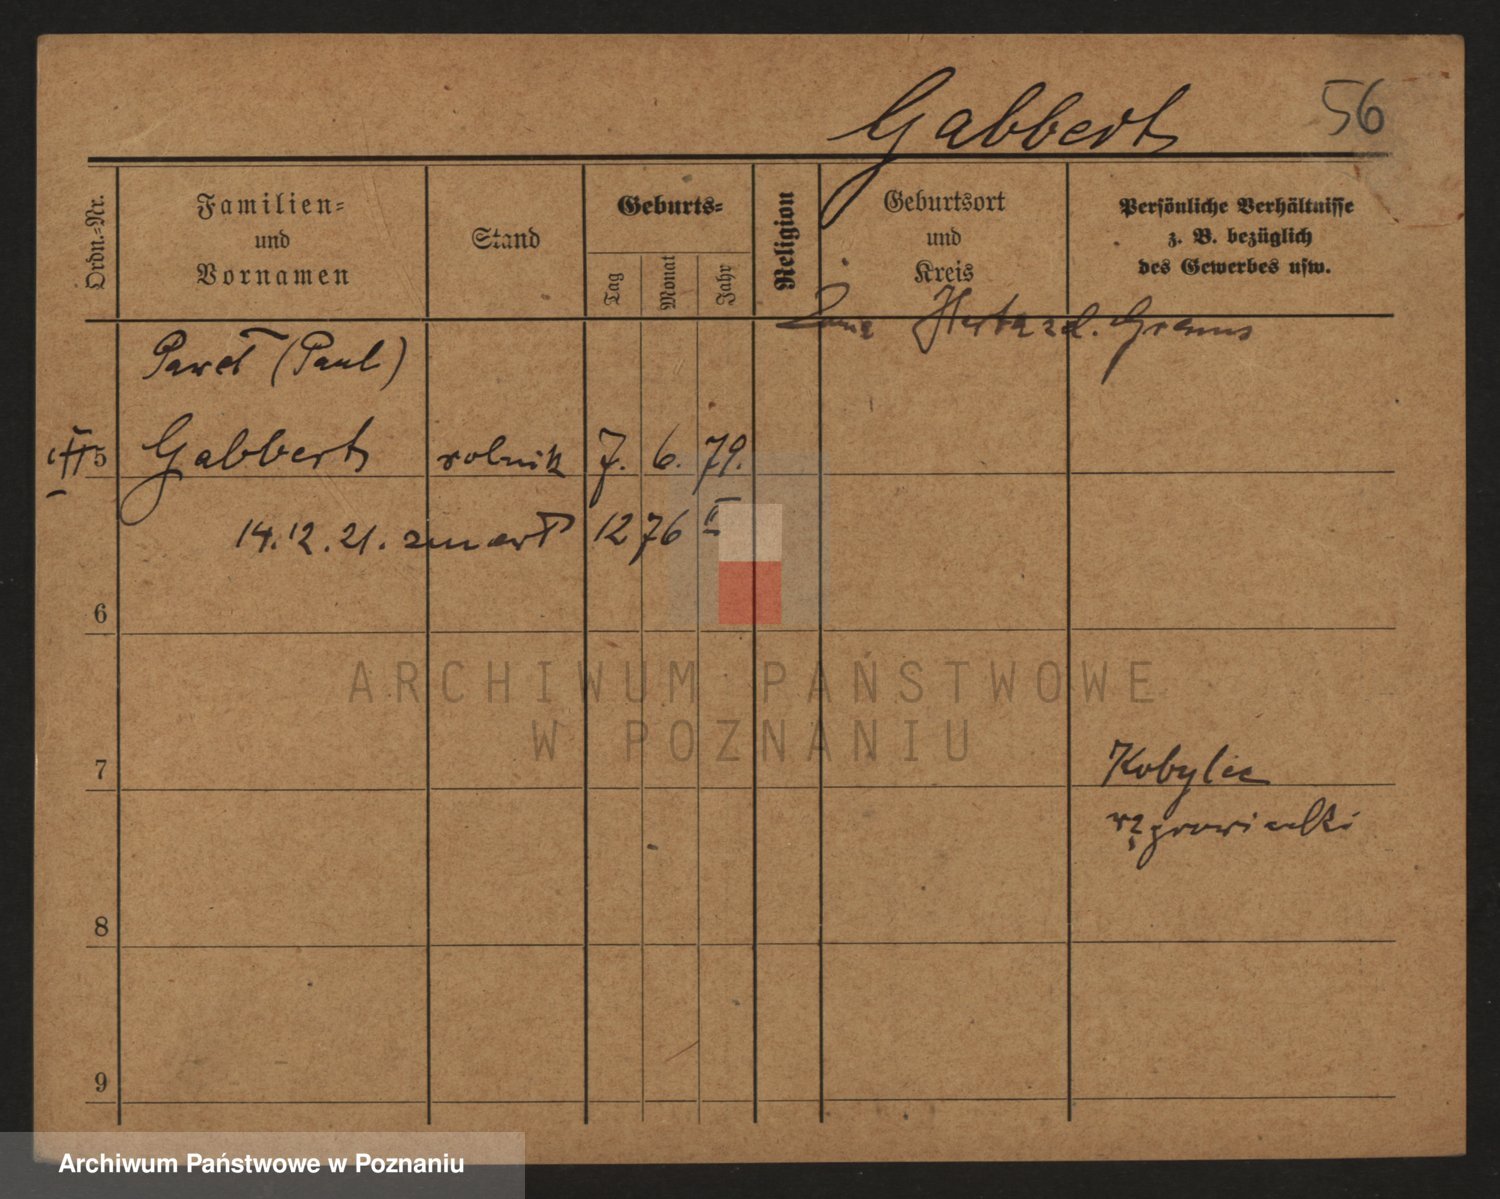 Gabbert 56
Ordn.=Nr.
Familien=
und
Vornamen
Stand
Geburts=
Tag
Monat
Jahr
Religion
Geburtsort
und
Kreis
Persönliche Verhältnisse
z. B. bezüglich
des Gewerbes usw.
Żona Herta zd. Grams
Paweł (Paul)
5 Gabbert rolnik 7. 6. 79.
14.12.21. zmarł 12 76
6
ARCHIWUM PAŃSTWOWE
W POZNANIU
7 Kobylec
wągrowiecki
8
9
Archiwum Państwowe w Poznaniu